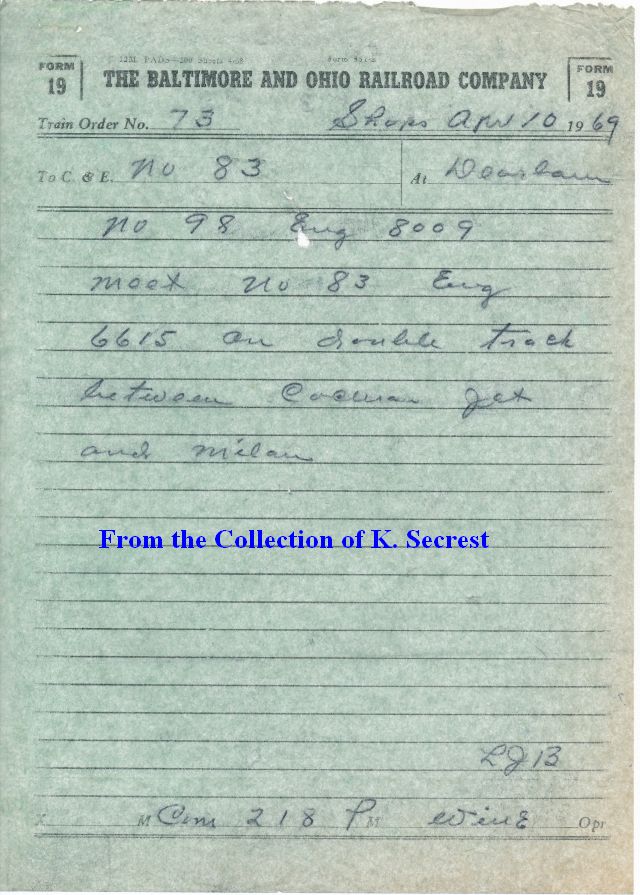 FORM 19
THE BALTIMORE AND OHIO RAILROAD COMPANY
FORM 19
Train Order No. 73 Shops Apr 10 1969
To C. & E. No 83 At Dearborn
No 98 Eng 8009
meet No 83 Eng
6615 on double track
between Cochran Jct
and Milan
From the Collection of K. Secrest
LJB
M Com 218 P M Opr